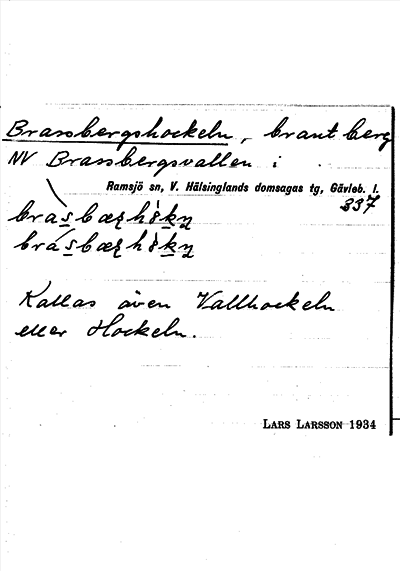 Brassbergshockeln, brant berg
NV Brassbergsvallen i
Ramsjö sn, V. Hälsinglands domsagas tg, Gävleb. l.
337
Kallas även Vallhockeln
eller Hockeln.
LARS LARSSON 1934